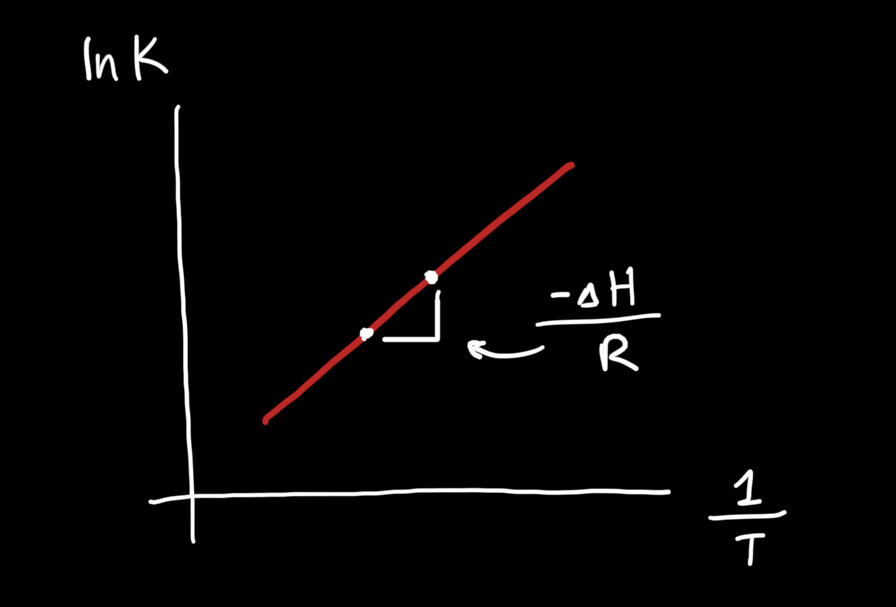 ln K
-ΔH
R
1
T